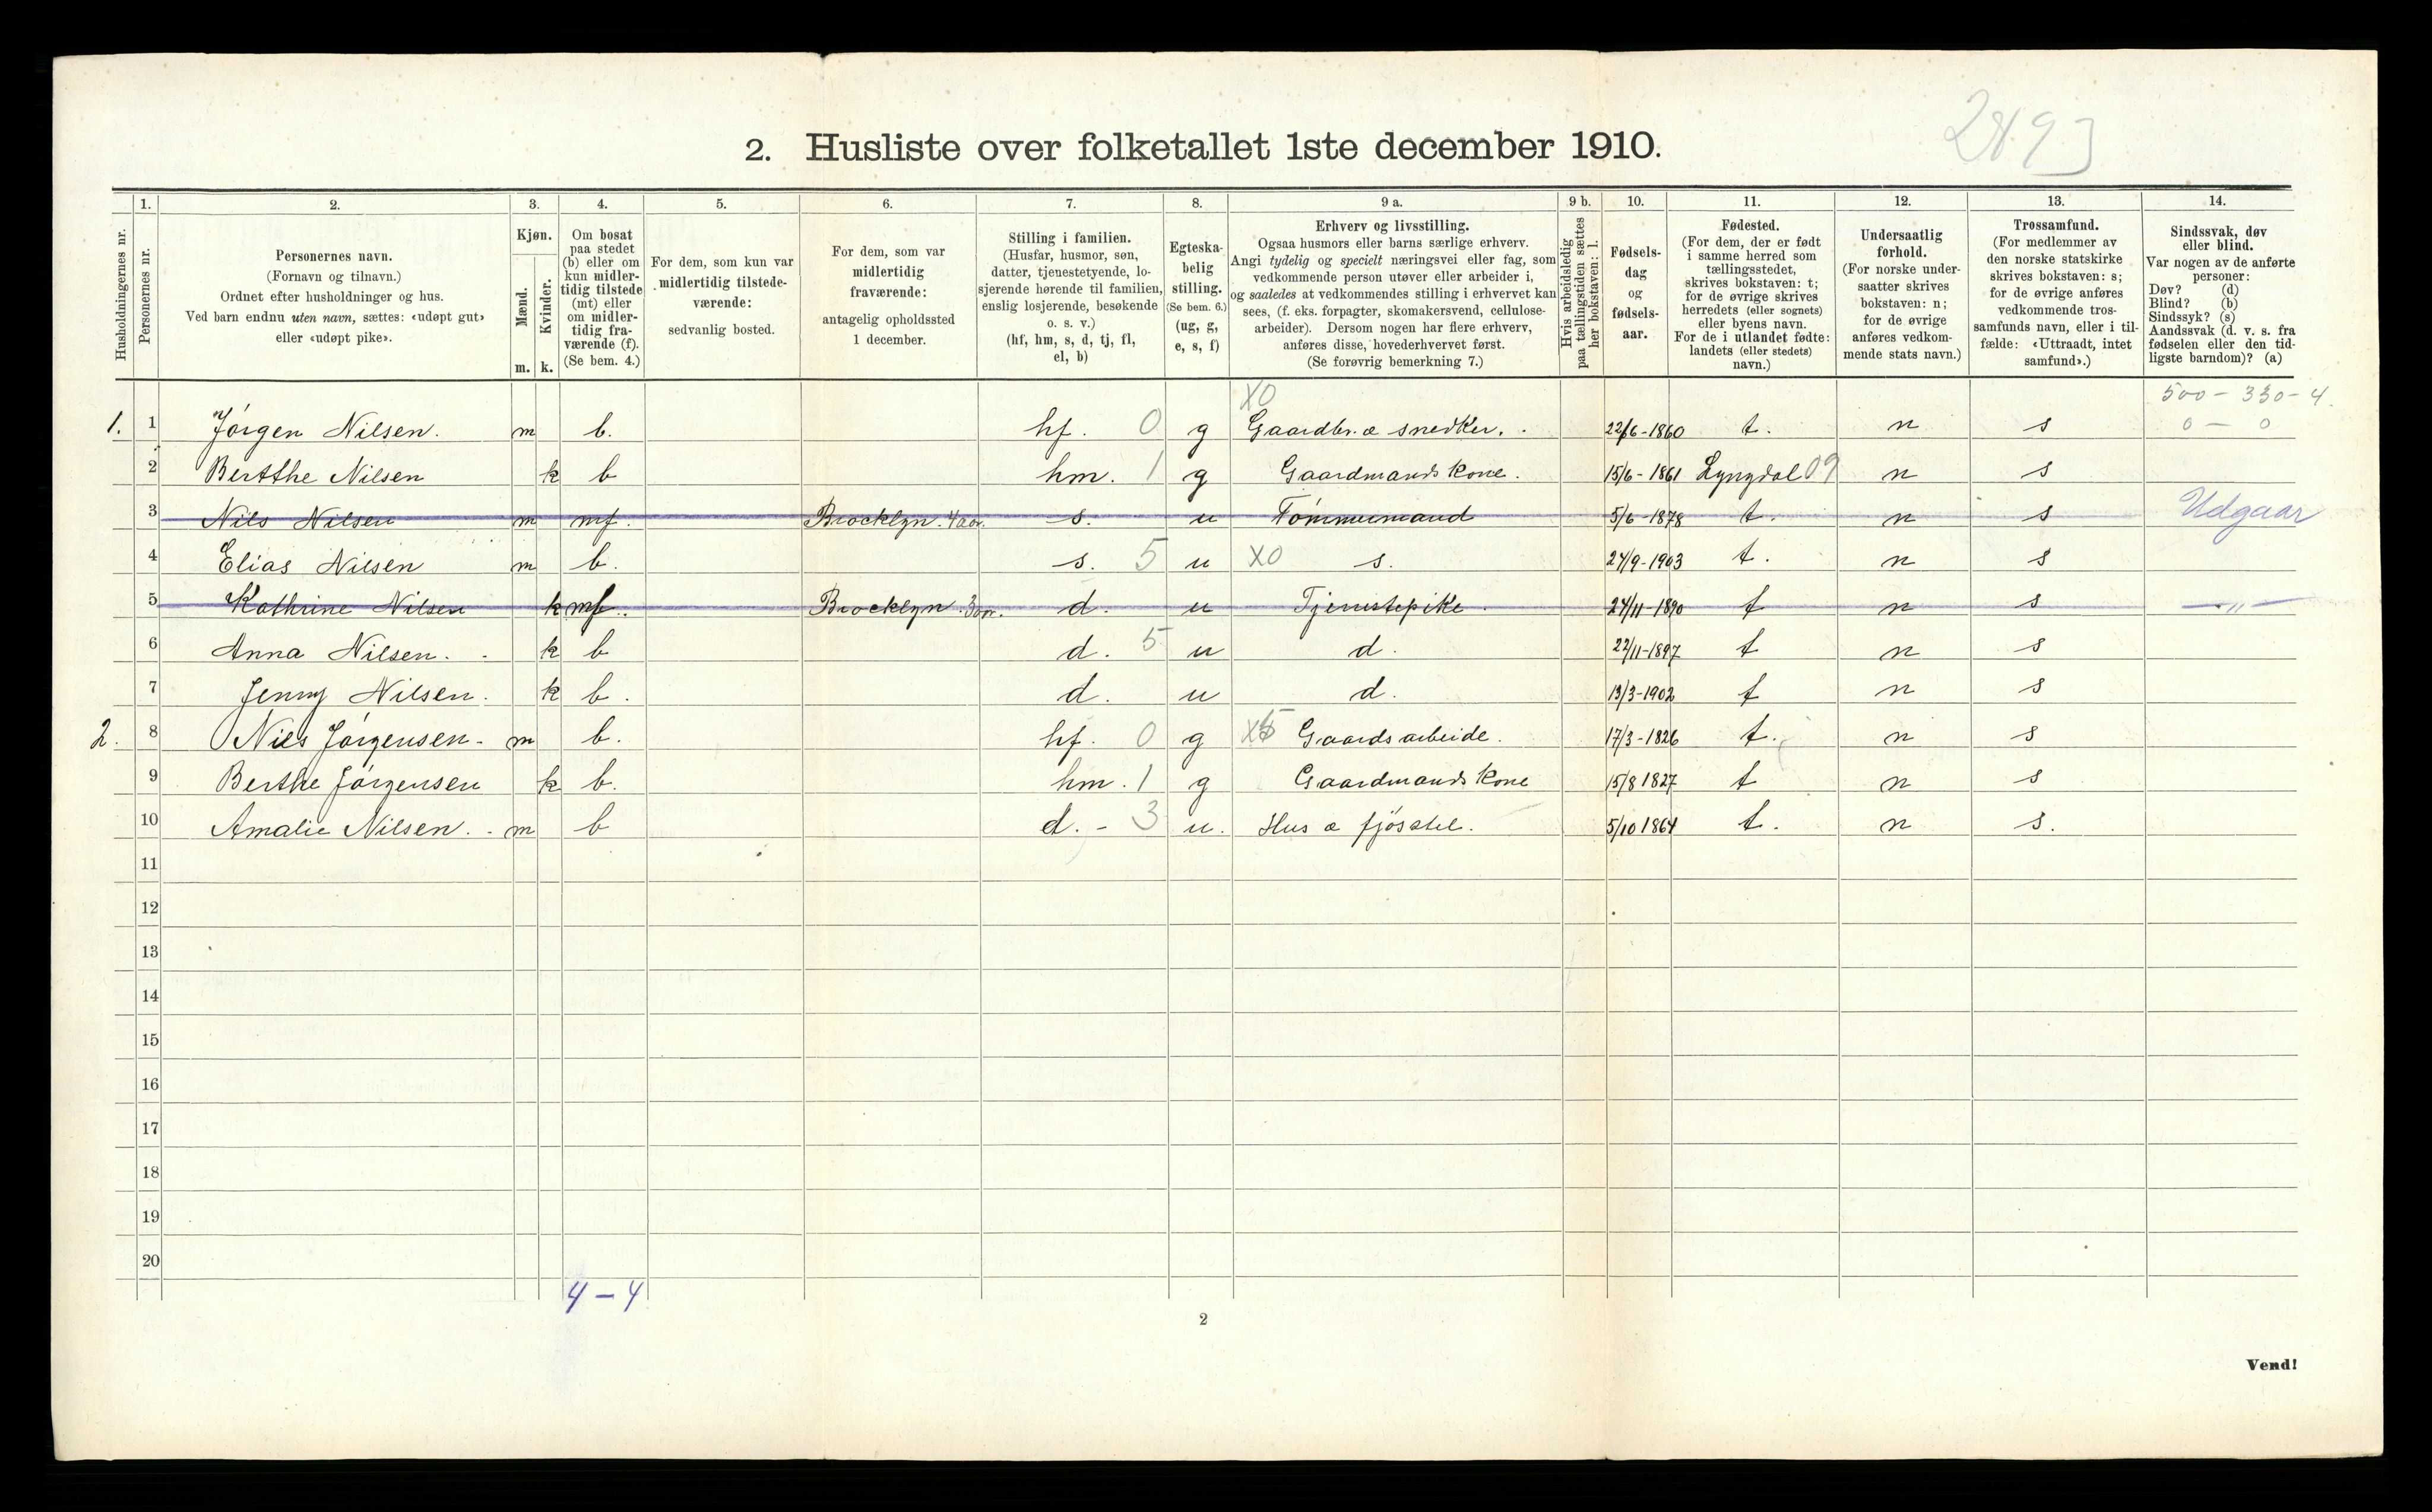 2493
2. Husliste over folketallet 1ste december 1910.
Husholdningernes nr.
1. Personernes nr.
2. Personernes navn.
(Fornavn og tilnavn.)
Ordnet efter husholdninger og hus.
Ved barn endnu uten navn, sættes: «udøpt gut»
eller «udøpt pike».
3. Kjøn.
Mænd. m.
Kvinder. k.
4. Om bosat
paa stedet
(b) eller om
kun midler-
tidig tilstede
(mt) eller
om midler-
tidig fra-
værende (f).
(Se bem. 4.)
5. For dem, som kun var
midlertidig tilstede-
værende:
sedvanlig bosted.
6. For dem, som var
midlertidig
fraværende:
antagelig opholdssted
1 december.
7. Stilling i familien.
(Husfar, husmor, søn,
datter, tjenestetyende, lo-
sjerende hørende til familien,
enslig losjerende, besøkende
o. s. v.)
(hf, hm, s, d, tj, fl,
el, b)
8. Egteska-
belig
stilling.
(Se bem. 6.)
(ug, g,
e, s, f)
9 a. Erhverv og livsstilling.
Ogsaa husmors eller barns særlige erhverv.
Angi tydelig og specielt næringsvei eller fag, som
vedkommende person utøver eller arbeider i,
og saaledes at vedkommendes stilling i erhvervet kan
sees, (f. eks. forpagter, skomakersvend, cellulose-
arbeider). Dersom nogen har flere erhverv,
anføres disse, hovederhvervet først.
(Se forøvrig bemerkning 7.)
9 b. Hvis arbeidsledig
paa tællingstiden sættes
her bokstaven: l.
10. Fødsels-
dag
og
fødsels-
aar.
11. Fødested.
(For dem, der er født
i samme herred som
tællingsstedet,
skrives bokstaven: t;
for de øvrige skrives
herredets (eller sognets)
eller byens navn.
For de i utlandet fødte:
landets (eller stedets)
navn.)
12. Undersaatlig
forhold.
(For norske under-
saatter skrives
bokstaven: n;
for de øvrige
anføres vedkom-
mende stats navn.)
13. Trossamfund.
(For medlemmer av
den norske statskirke
skrives bokstaven: s;
for de øvrige anføres
vedkommende tros-
samfunds navn, eller i til-
fælde: «Uttraadt, intet
samfund».)
14. Sindssvak, døv
eller blind.
Var nogen av de anførte
personer:
Døv? (d)
Blind? (b)
Sindssyk? (s)
Aandssvak (d. v. s. fra
fødselen eller den tid-
ligste barndom)? (a)
X0 500 - 330 - 4.
1. 1 Jørgen Nilsen. m b. hf. 0 g Gaardbr. æ snedker. 22/6-1860 t. n s 0 - 0
2 Bertthe Nilsen k b hm. 1 g Gaardmands kone. 15/6-1861 Lyngdal 09 n s
3 Nils Nilsen m mf. Brocklyn. 4 aar. s. u Tømmermand 5/6-1878 t. n s Udgaar
4 Elias Nilsen m b. s. 5 u X0 s. 24/9-1903 t. n s
5 Kathrine Nilsen k mf. Brocklyn. 3 aar. d. u Tjenestepike. 24/11-1890 t n s - " -
6 Anna Nilsen. k b d. 5 u d. 22/11-1897 t n s
7 Jenny Nilsen. k b. d. u d. 13/3-1902 t n s
2. 8 Niels Jørgensen. m b. hf. 0 g Gaardsarbeide. 17/3-1826 t. n s
9 Berthe Jørgensen k b. hm. 1 g Gaardmands kone 15/8 1827 t n s
10 Amalie Nilsen. m b d. - 3 u. Hus æ fjøsstel. 5/10 1864 t. n s.
11
12
13
14
15
16
17
18
19
20
4 - 4
2
Vend!